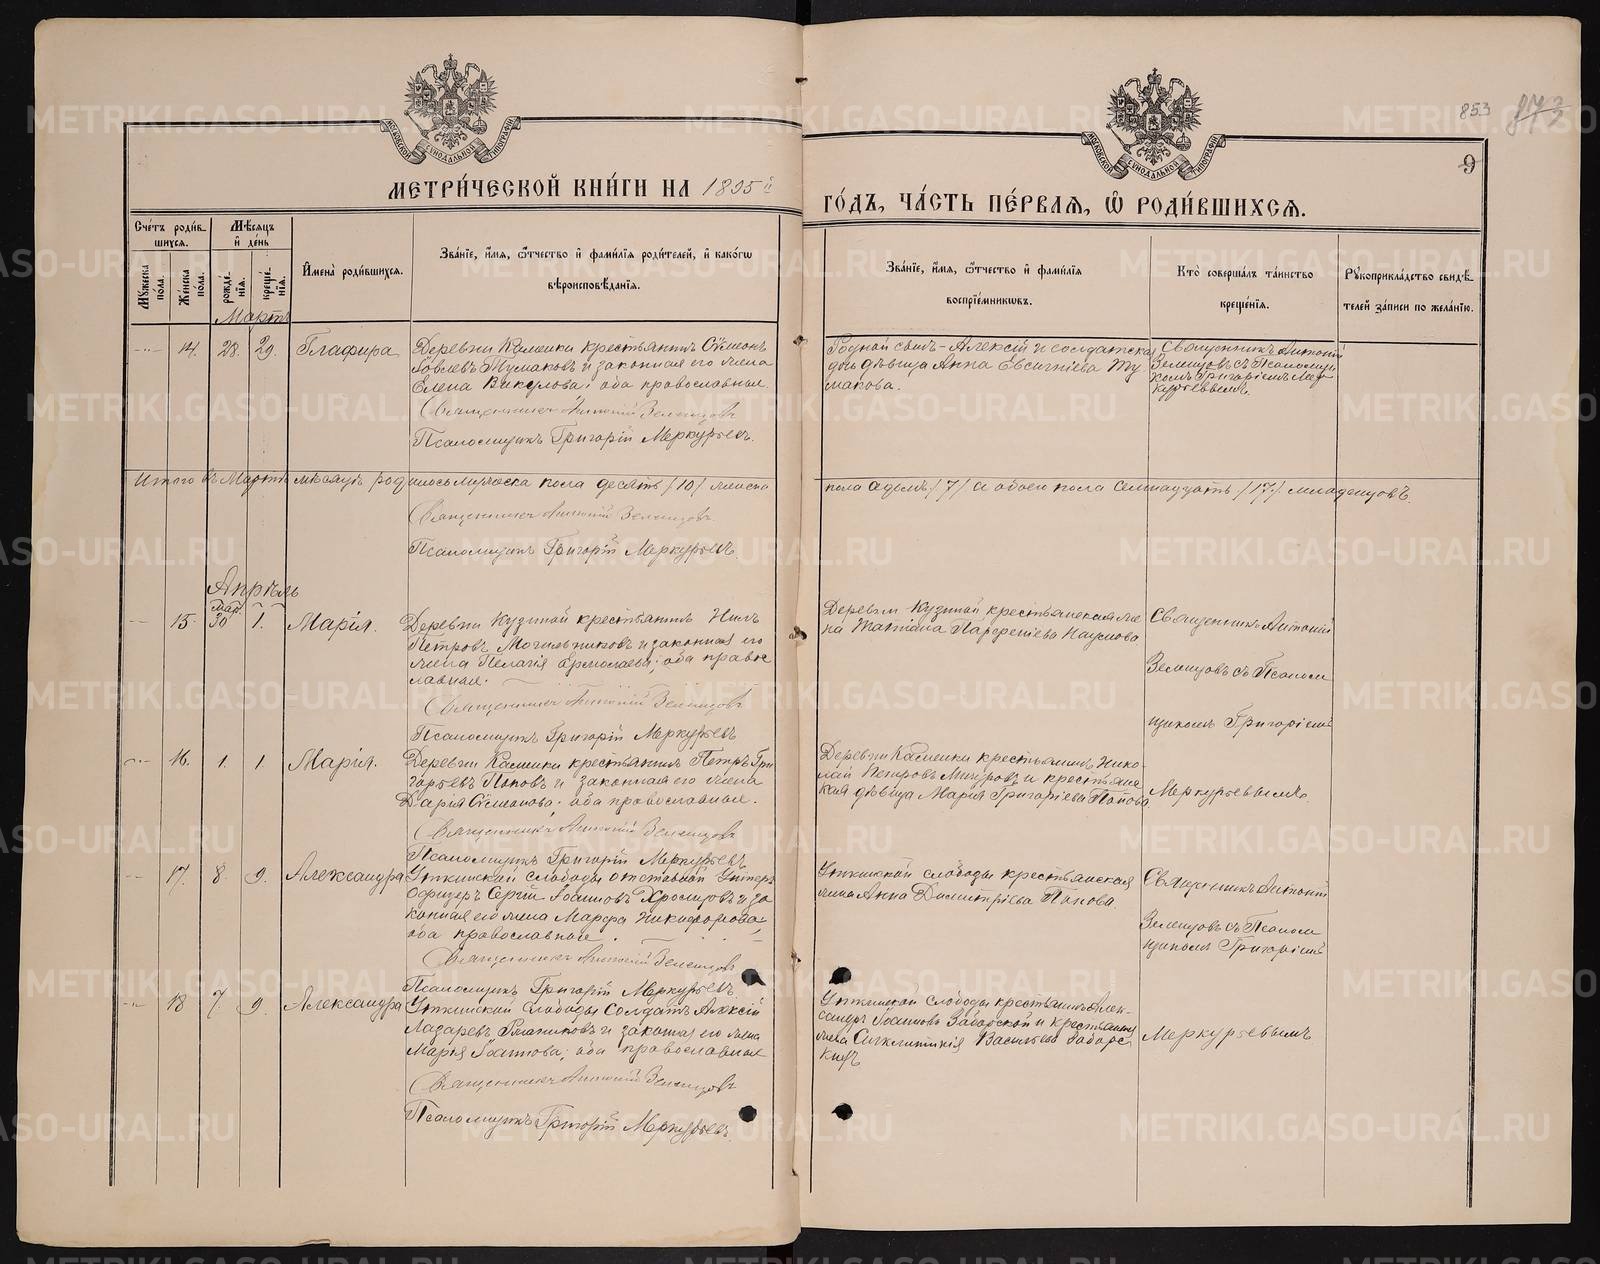 853
9
МОСКОВСКОЙ СѴНОДАЛЬНОЙ ТИПОГРАФІИ
МОСКОВСКОЙ СѴНОДАЛЬНОЙ ТИПОГРАФІИ
МЕТРИ́ЧЕСКОЙ КНИ́ГИ НА 1895 й
ГО́ДЪ, ЧА́СТЬ ПЕ́РВАЯ, Ѡ РОДИ́ВШИХСЯ.
Сче́тъ роди́в-
шихся.
Мѣ́сяцъ
и҆ де́нь
Мꙋ́жеска по́ла.
Же́нска по́ла.
рожде́нїя.
креще́нїя.
И҆мена̀ роди́вшихся.
Зва́нїе, и҆́мя, ѻ҆́тчество и҆ фами́лїя роди́телей, и҆ како́гѡ
вѣроисповѣ́данїя.
Зва́нїе, и҆́мя, ѻ҆́тчество и҆ фами́лїя
воспрїе́мникѡвъ.
Кто̀ соверша́лъ та́инство
креще́нїя.
Рꙋкоприкла́дство свидѣ́-
телей за́писи по жела́нїю.
Мартъ
14. 28. 29. Глафира
Деревни Каменки крестьянинъ Сѵмеонъ
Іовлевъ Тумаковъ и законная его жена
Елена Викулова; оба православные
Священникъ Антоній Зеленцовъ
Псаломщикъ Григорій Меркурьевъ.
Родной сынъ Алексій и солдатская
дочь дѣвица Анна Евсигніева Ту
макова.
Священникъ Антоній
Зеленцовъ съ Псаломщи
комъ Григоріемъ Мер
курьевымъ.
Итого въ Мартѣ мѣсяцѣ родилось мужеска пола десять /10/ женска
пола седьмь /7/ а обоего пола семнадцать /17/ младенцовъ.
Священникъ Антоній Зеленцовъ
Псаломщикъ Григорій Меркурьевъ.
Апрѣль
Мар.
15. 30 1. Марія.
Деревни Кузиной крестьянинъ Нилъ
Петровъ Могильниковъ и законная его
жена Пелагія Ермолаева; оба правос
лавные.
Священникъ Антоній Зеленцовъ
Псаломщикъ Григорій Меркурьевъ
Деревни Кузиной крестьянская же
на Татіана Парфеніева Наумова.
Священникъ Антоній
Зеленцовъ съ Псалом
щикомъ Григоріемъ
Меркурьевымъ.
16. 1. 1 Марія.
Деревни Каменки крестьянинъ Петръ Гри
горьевъ Поповъ и законная его жена
Дарія Сѵмеонова; оба православные.
Священникъ Антоній Зеленцовъ
Псаломщикъ Григорій Меркурьевъ
Деревни Каменки крестьянинъ Нико-
лай Петровъ и крестьянс
кая дѣвица Марія Григоріева Попова
17. 8. 9. Александра
Уткинской слободы отставной Унтеръ
Офицеръ Сергій Іоанновъ Хромцовъ и за
конная его жена Марфа Никифорова;
оба православные.
Священникъ Антоній Зеленцовъ
Псаломщикъ Григорій Меркурьевъ.
Уткинской слободы крестьянская
жена Анна Димитріева Попова.
Священникъ Антоній
Зеленцовъ съ Псалом
щикомъ Григоріемъ
Меркурьевымъ
18 7. 9. Александра
Уткинской Слободы Солдатъ Алексій
Лазаревъ и законная его жена
Марія Іоаннова; оба православные
Священникъ Антоній Зеленцовъ
Псаломщикъ Григорій Меркурьевъ.
Уткинской Слободы крестьянинъ Алек-
сандръ Іоанновъ Заборской и крестьянина
жена Сигклитикія Васильева Заборс
кихъ
METRIKI.GASO-URAL.RU